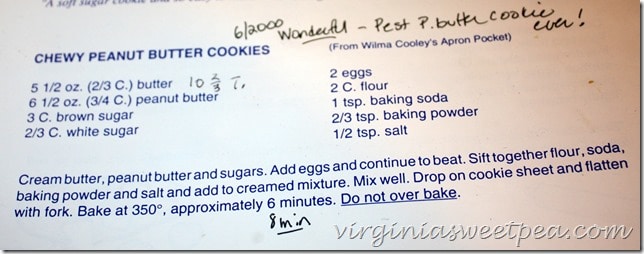 "A soft sugar cookie and so
6/2000 Wonderful – Best P. butter cookie ever!
CHEWY PEANUT BUTTER COOKIES
(From Wilma Cooley's Apron Pocket)
5 1/2 oz. (2/3 C.) butter 10 2/3 T.
6 1/2 oz. (3/4 C.) peanut butter
3 C. brown sugar
2/3 C. white sugar
2 eggs
2 C. flour
1 tsp. baking soda
2/3 tsp. baking powder
1/2 tsp. salt
Cream butter, peanut butter and sugars. Add eggs and continue to beat. Sift together flour, soda,
baking powder and salt and add to creamed mixture. Mix well. Drop on cookie sheet and flatten
with fork. Bake at 350°, approximately 6 minutes. Do not over bake.
8 min
virginiasweetpea.com